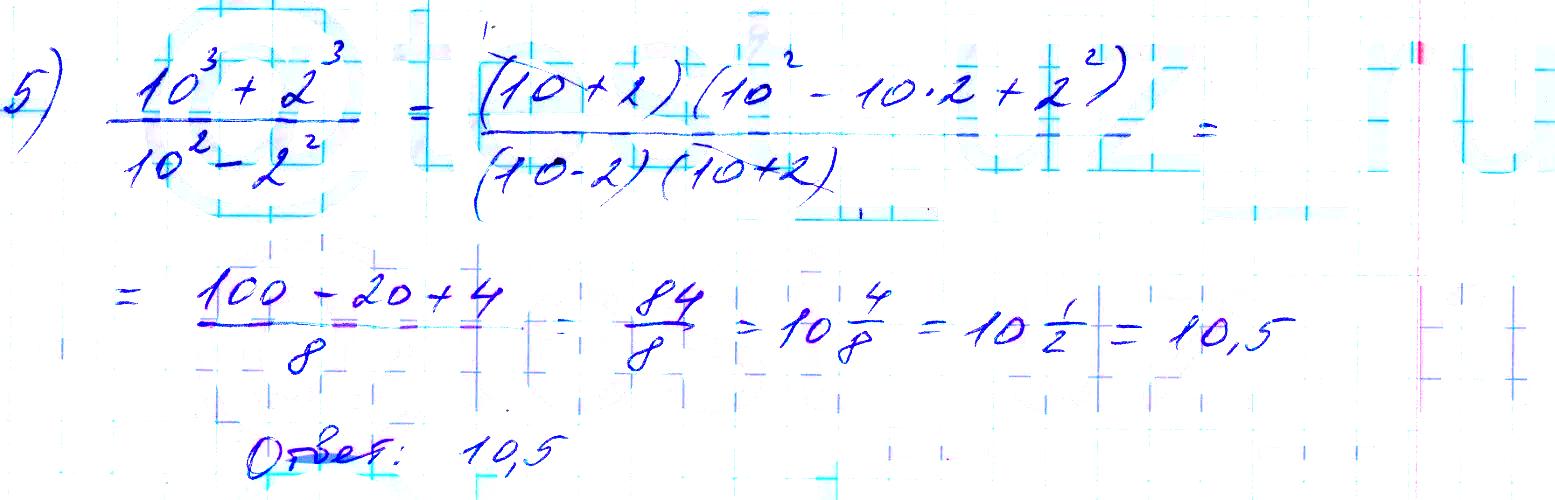 5) (10³ + 2³)/(10² - 2²) = ((10 + 2)(10² - 10·2 + 2²))/((10-2)(10+2)) =
= (100 - 20 + 4)/8 = 84/8 = 10 4/8 = 10 1/2 = 10,5
Ответ: 10,5